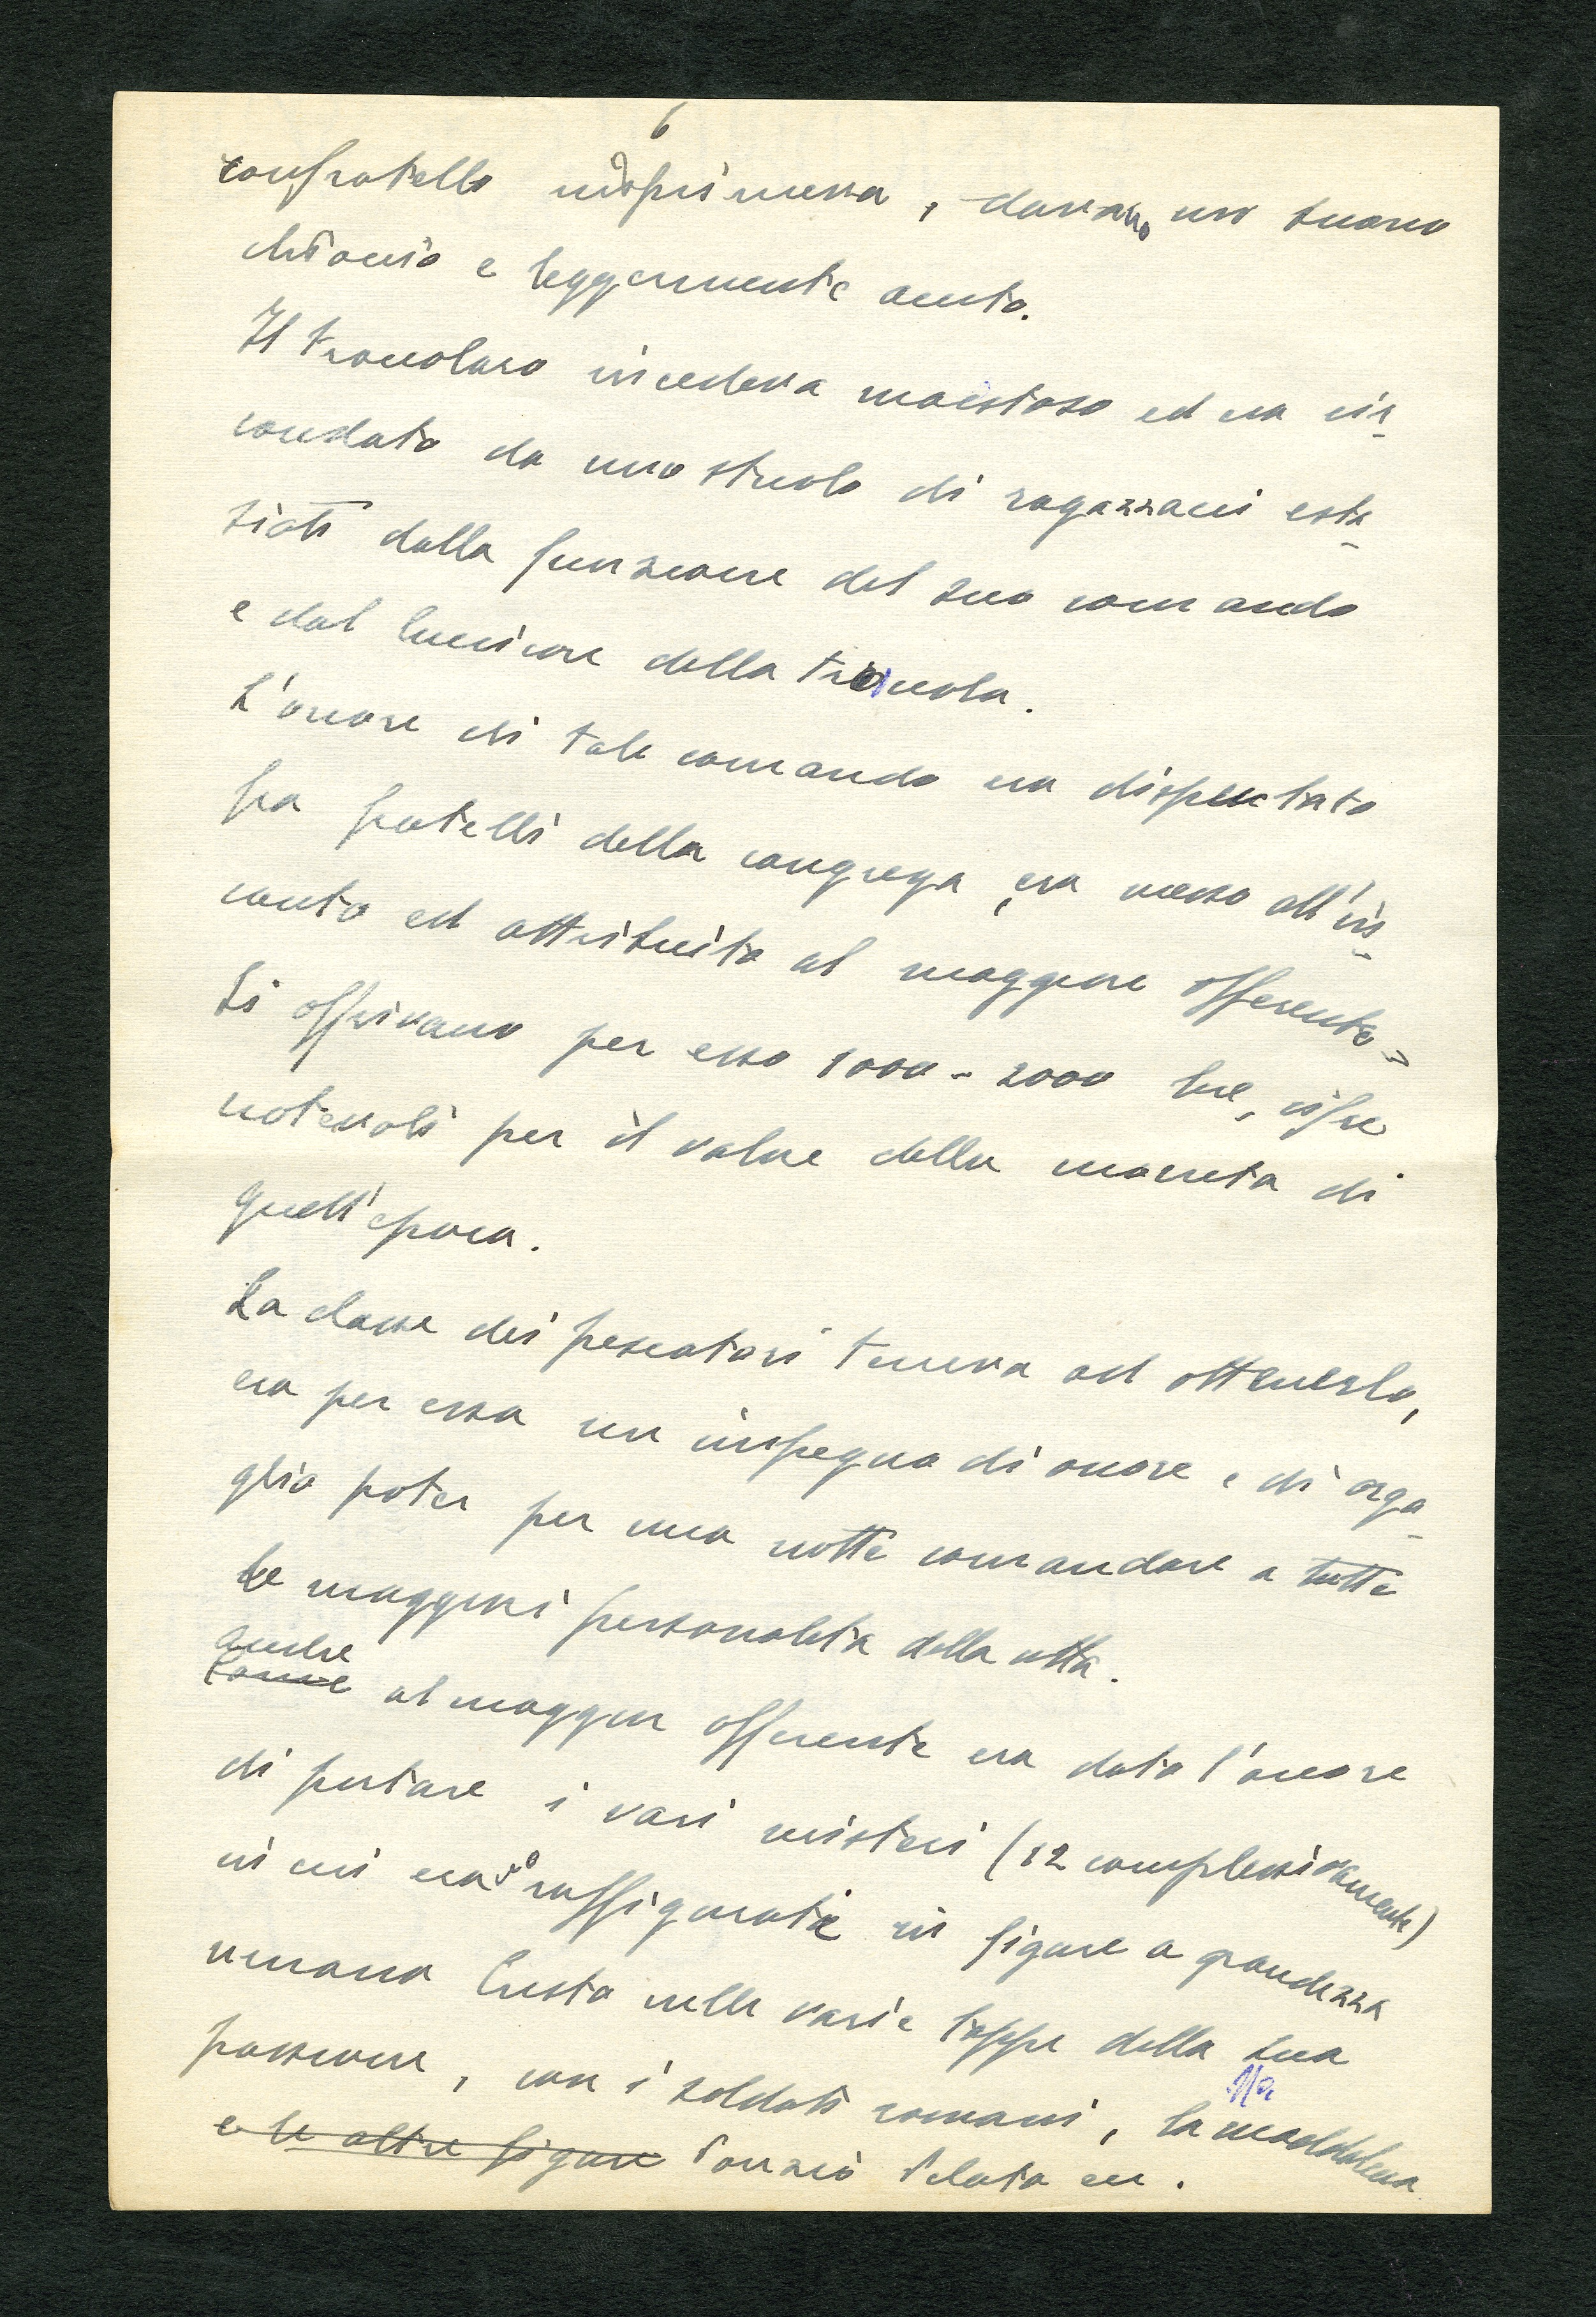 6
confratello imprimeva, davano un suono
chioccio e leggermente acuto.
Il troccolaro incedeva maestoso ed era cir-
condato da uno stuolo di ragazzacci esta-
siati dalla funzione del suo comando
e dal luccicore della troccola.
L'onore di tale comando era disputato
fra fratelli della congrega, era messo all'in-
canto ed attribuito al maggiore offerente.
Si offrivano per esso 1000 - 2000 lire, cifre
notevoli per il valore della moneta di
quell'epoca.
La classe dei pescatori teneva ad ottenerlo,
era per essa un impegno di onore e di orgo-
glio poter per una notte comandare a tutte
le maggiori personalità della città.
anche
come al maggior offerente era dato l'onore
di portare i vari misteri (12 complessivamente)
in cui erano raffigurati in figure a grandezza
umana Cristo nelle varie tappe della sua
passione, con i soldati romani, la Maddalena
e le altre figure Ponzio Pilato ecc.